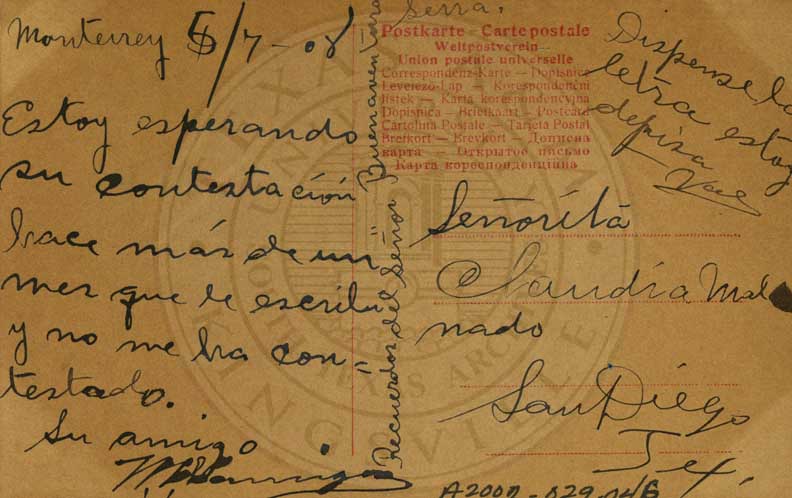 Monterrey 5/7-08
Estoy esperando
su contestación
hace más de un
mes que le escribí
y no me ha con=
testado.
Su amigo
Recuerdos del Señor Buenaventura
Serra.
Postkarte – Carte postale
Weltpostverein –
Union postale universelle
Correspondenz-Karte – Dopisnice
Levelező-Lap – Korespondenční
lístek – Karta korespondencyjna
Dopisnica – Briefkaart – Postcard
Cartolina Postale – Tarjeta Postal
Brefkort – Brevkort – Дописна
карта – Открытое письмо
Карта кореспонденційна
Dispense la
letra estoy
deprisa
– Vale
Señorita
Claudia Mal
nado
San Diego
Tex.
A2007-029.0
SOUTH TEXAS ARCHIVES
KINGSVILLE